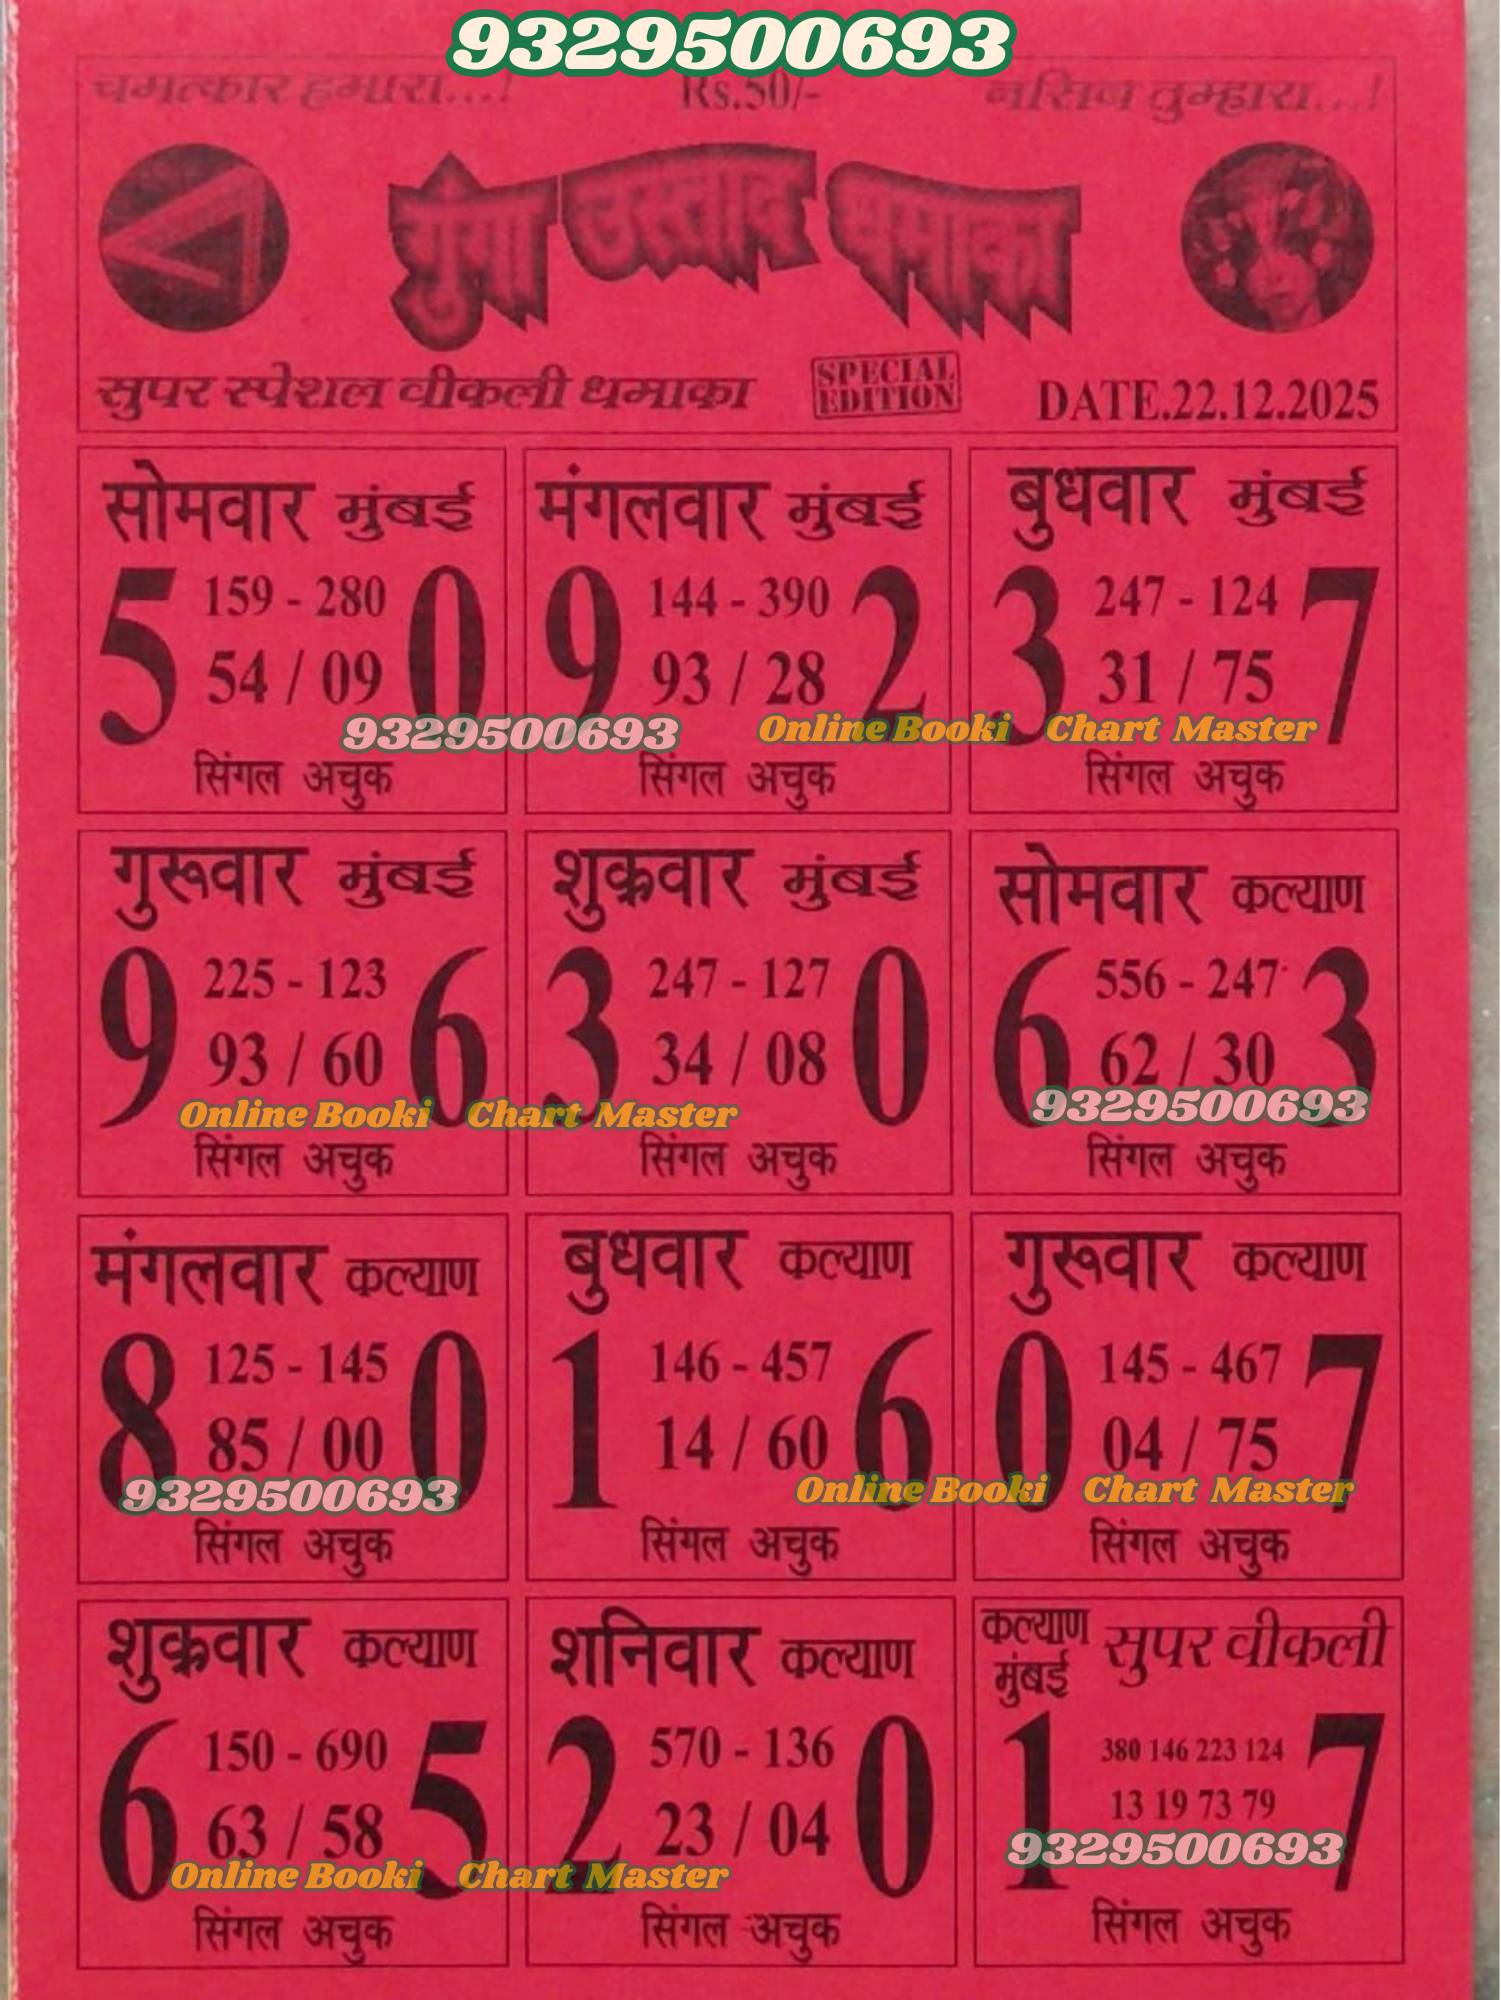 9329500693
चमत्कार हमारा...! Rs.50/- नसिब तुम्हारा...!
गुंगा उस्ताद धमाका
सुपर स्पेशल वीकली धमाका SPECIAL EDITION DATE.22.12.2025
सोमवार मुंबई
5 159 - 280 0
54 / 09
सिंगल अचुक
मंगलवार मुंबई
9 144 - 390 2
93 / 28
सिंगल अचुक
बुधवार मुंबई
3 247 - 124 7
31 / 75
सिंगल अचुक
9329500693 Online Booki Chart Master
गुरूवार मुंबई
9 225 - 123 6
93 / 60
सिंगल अचुक
शुक्रवार मुंबई
3 247 - 127 0
34 / 08
सिंगल अचुक
सोमवार कल्याण
6 556 - 247 3
62 / 30
सिंगल अचुक
Online Booki Chart Master 9329500693
मंगलवार कल्याण
8 125 - 145 0
85 / 00
सिंगल अचुक
बुधवार कल्याण
1 146 - 457 6
14 / 60
सिंगल अचुक
गुरूवार कल्याण
0 145 - 467 7
04 / 75
सिंगल अचुक
9329500693 Online Booki Chart Master
शुक्रवार कल्याण
6 150 - 690 5
63 / 58
सिंगल अचुक
शनिवार कल्याण
2 570 - 136 0
23 / 04
सिंगल अचुक
कल्याण मुंबई सुपर वीकली
1 380 146 223 124 7
13 19 73 79
सिंगल अचुक
Online Booki Chart Master 9329500693